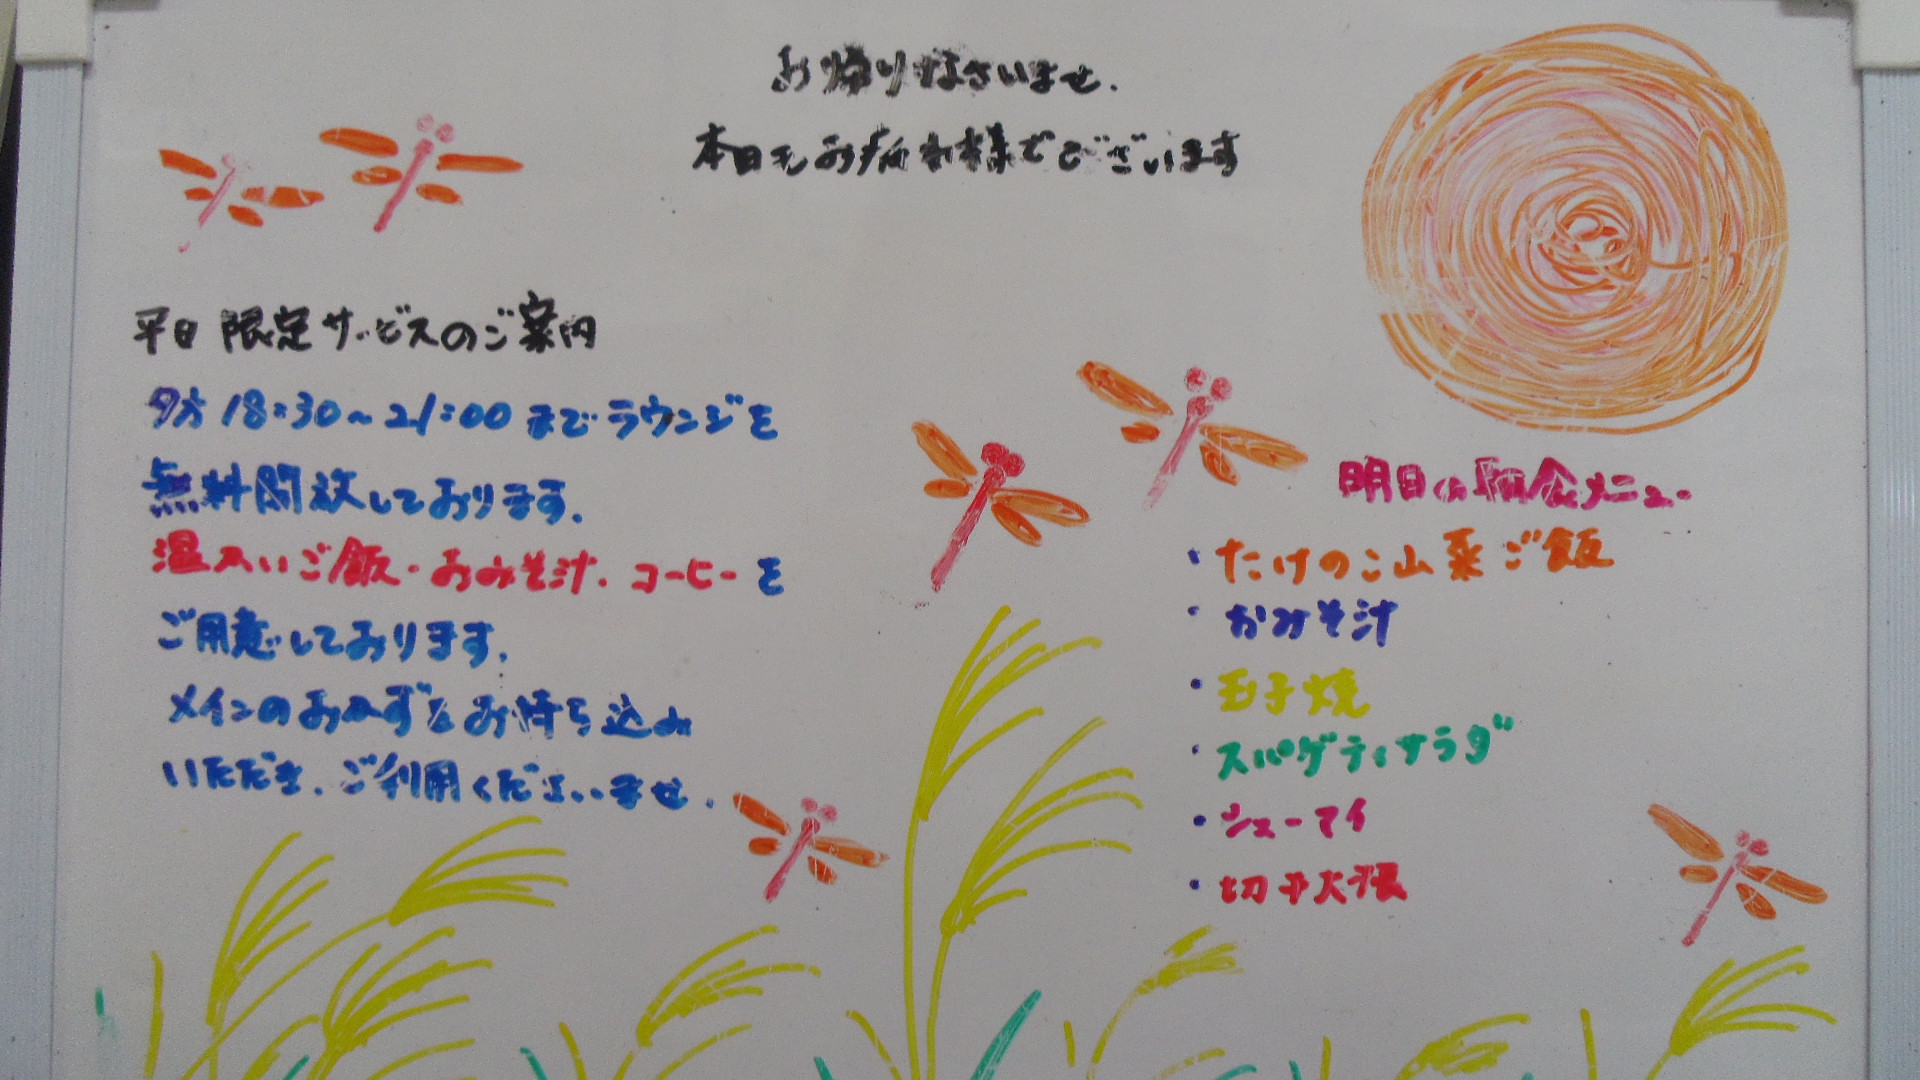 お帰りなさいませ.
本日もお疲れ様でございます
平日限定サービスのご案内
夕方18:30~21:00までラウンジを
無料開放しております.
温かいご飯・おみそ汁.コーヒーを
ご用意しております.
メインのおかずをお持ち込み
いただき.ご利用くださいませ.
明日の朝食メニュー
・たけのこ山菜ご飯
・おみそ汁
・玉子焼
・スパゲティサラダ
・シューマイ
・切干大根